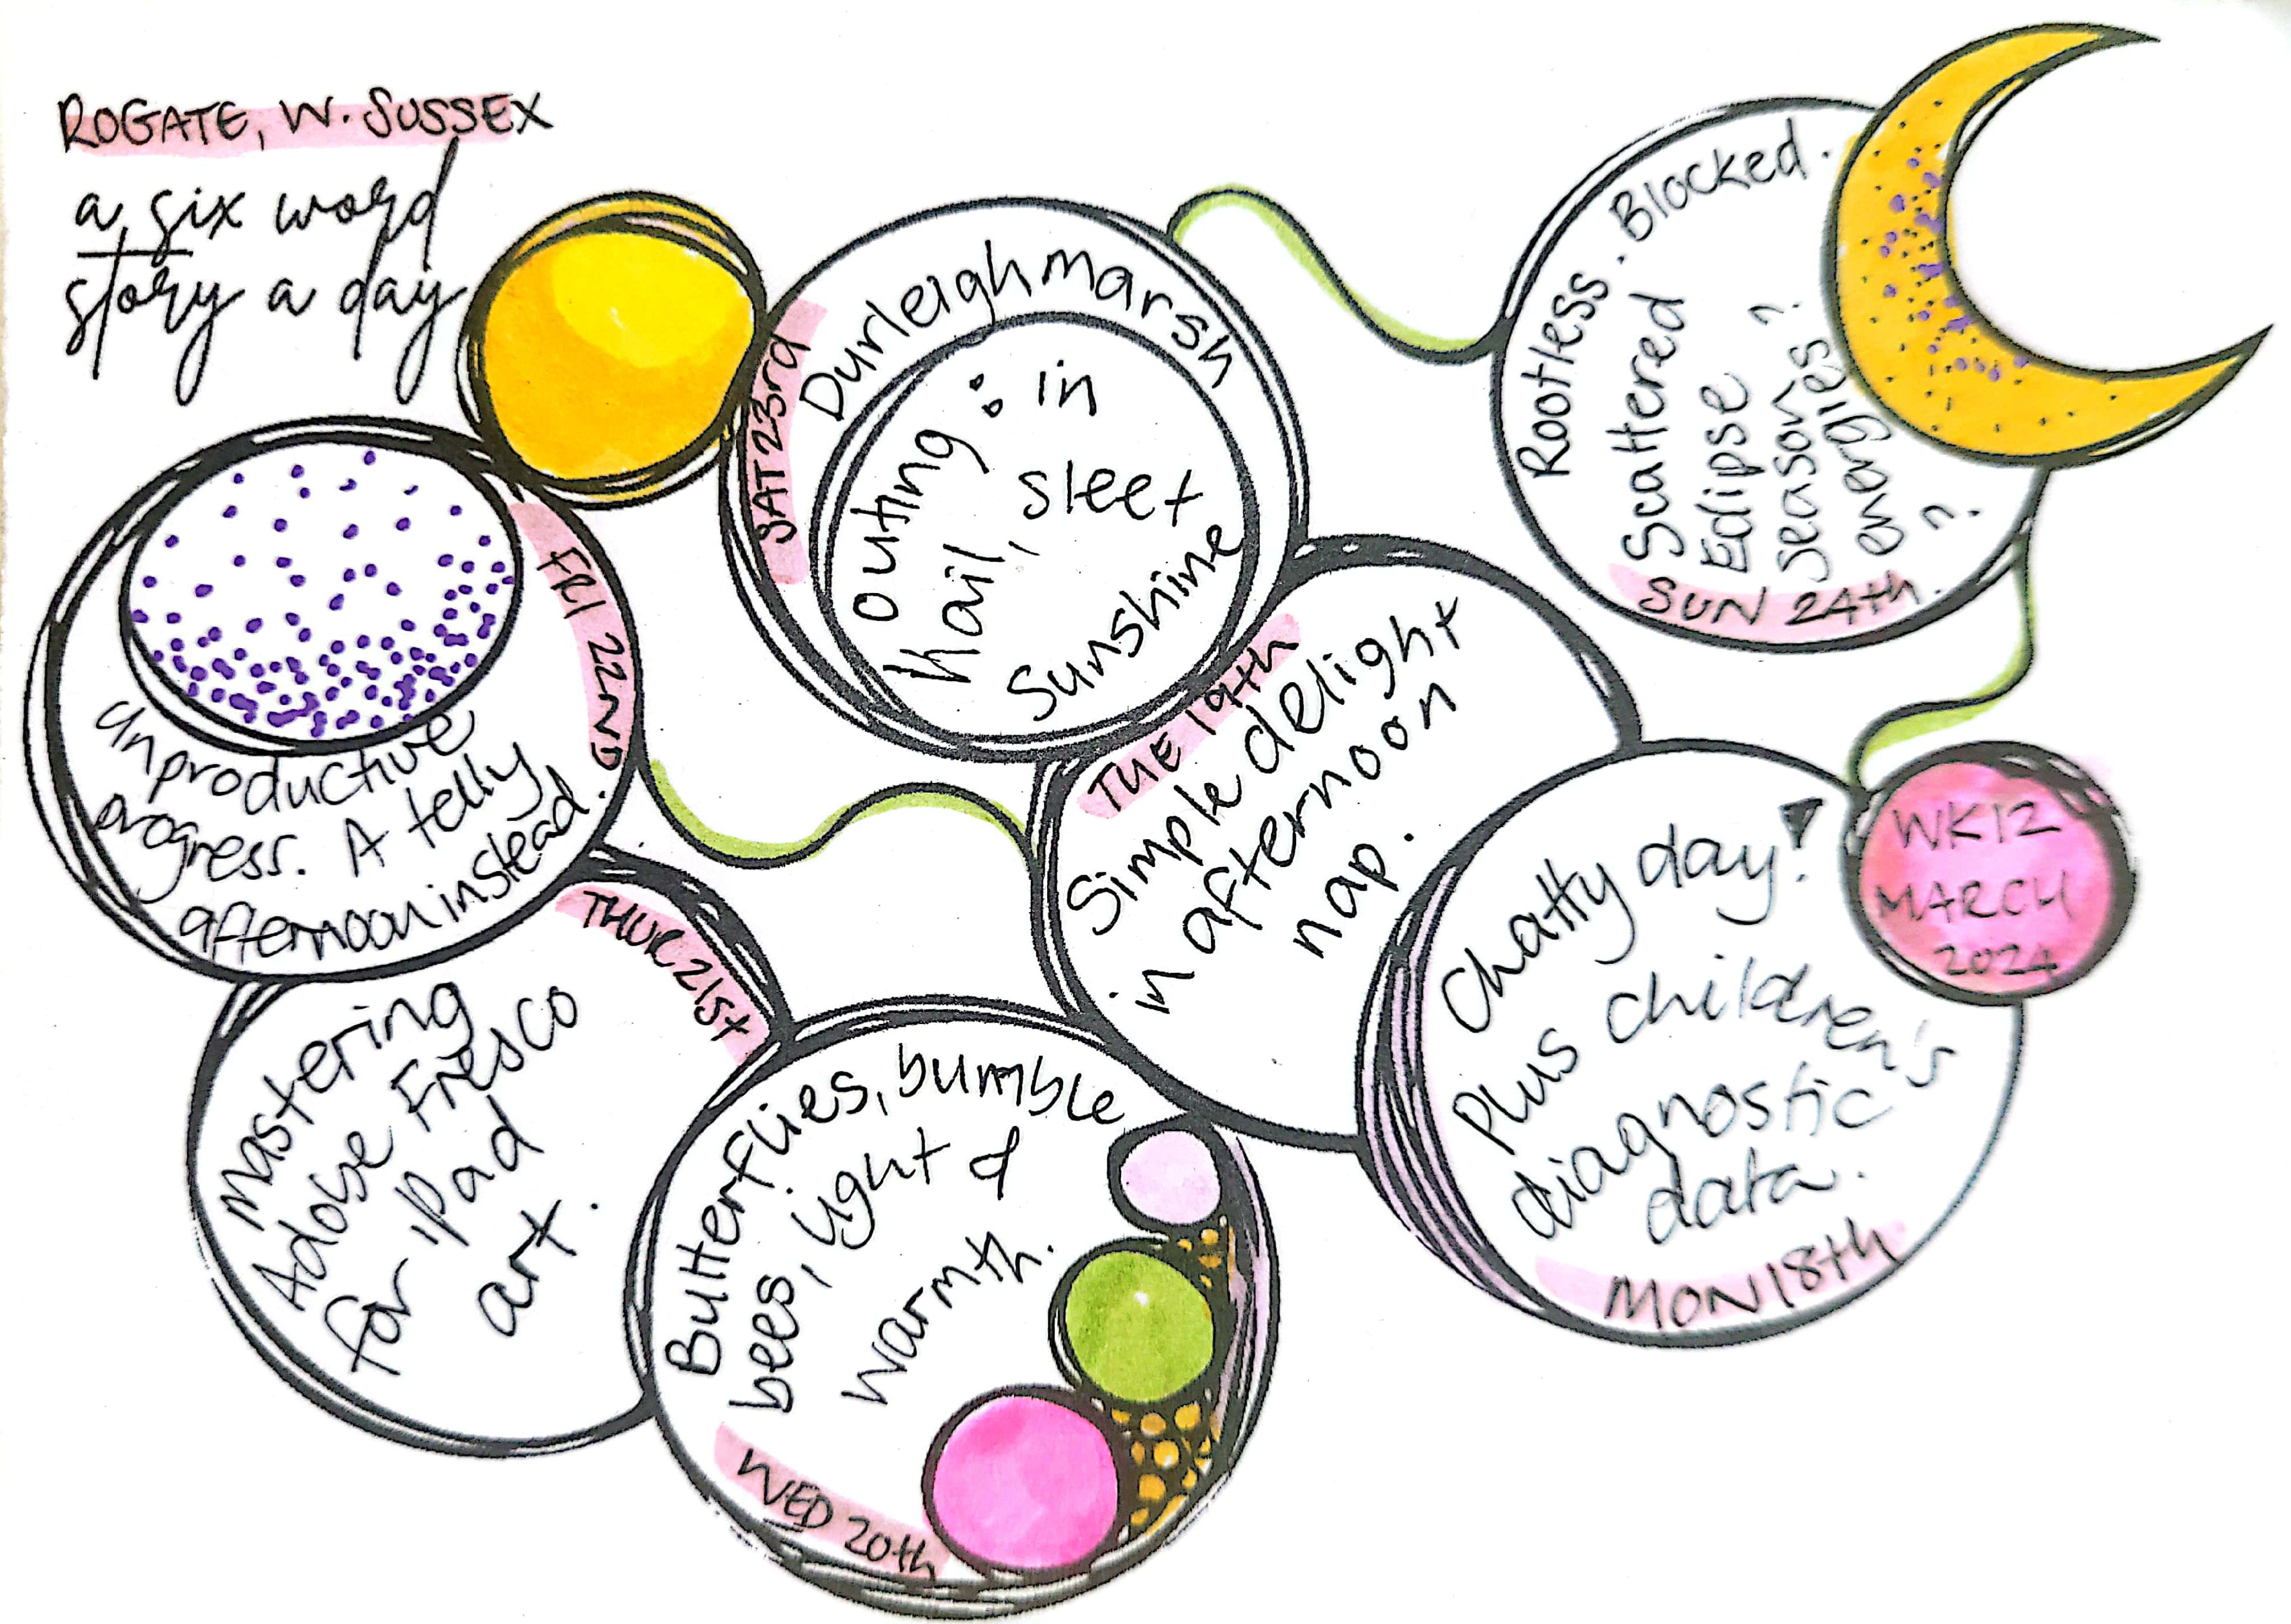 ROGATE, W. SUSSEX
a six word
story a day
WK12
MARCH
2024
Chatty day!
Plus children's
diagnostic
data.
MON 18th
TUE 19th
Simple delight
in afternoon
nap.
Butterflies, bumble
bees, light &
warmth.
WED 20th
THUR 21st
Mastering
Adobe Fresco
for iPad
art.
FRI 22ND
Unproductive
progress. A telly
afternoon instead.
SAT 23rd
Durleighmarsh
outing : in
hail, sleet
Sunshine
Rootless. Blocked.
Scattered
Edipse
season?
energies
?.
SUN 24th.